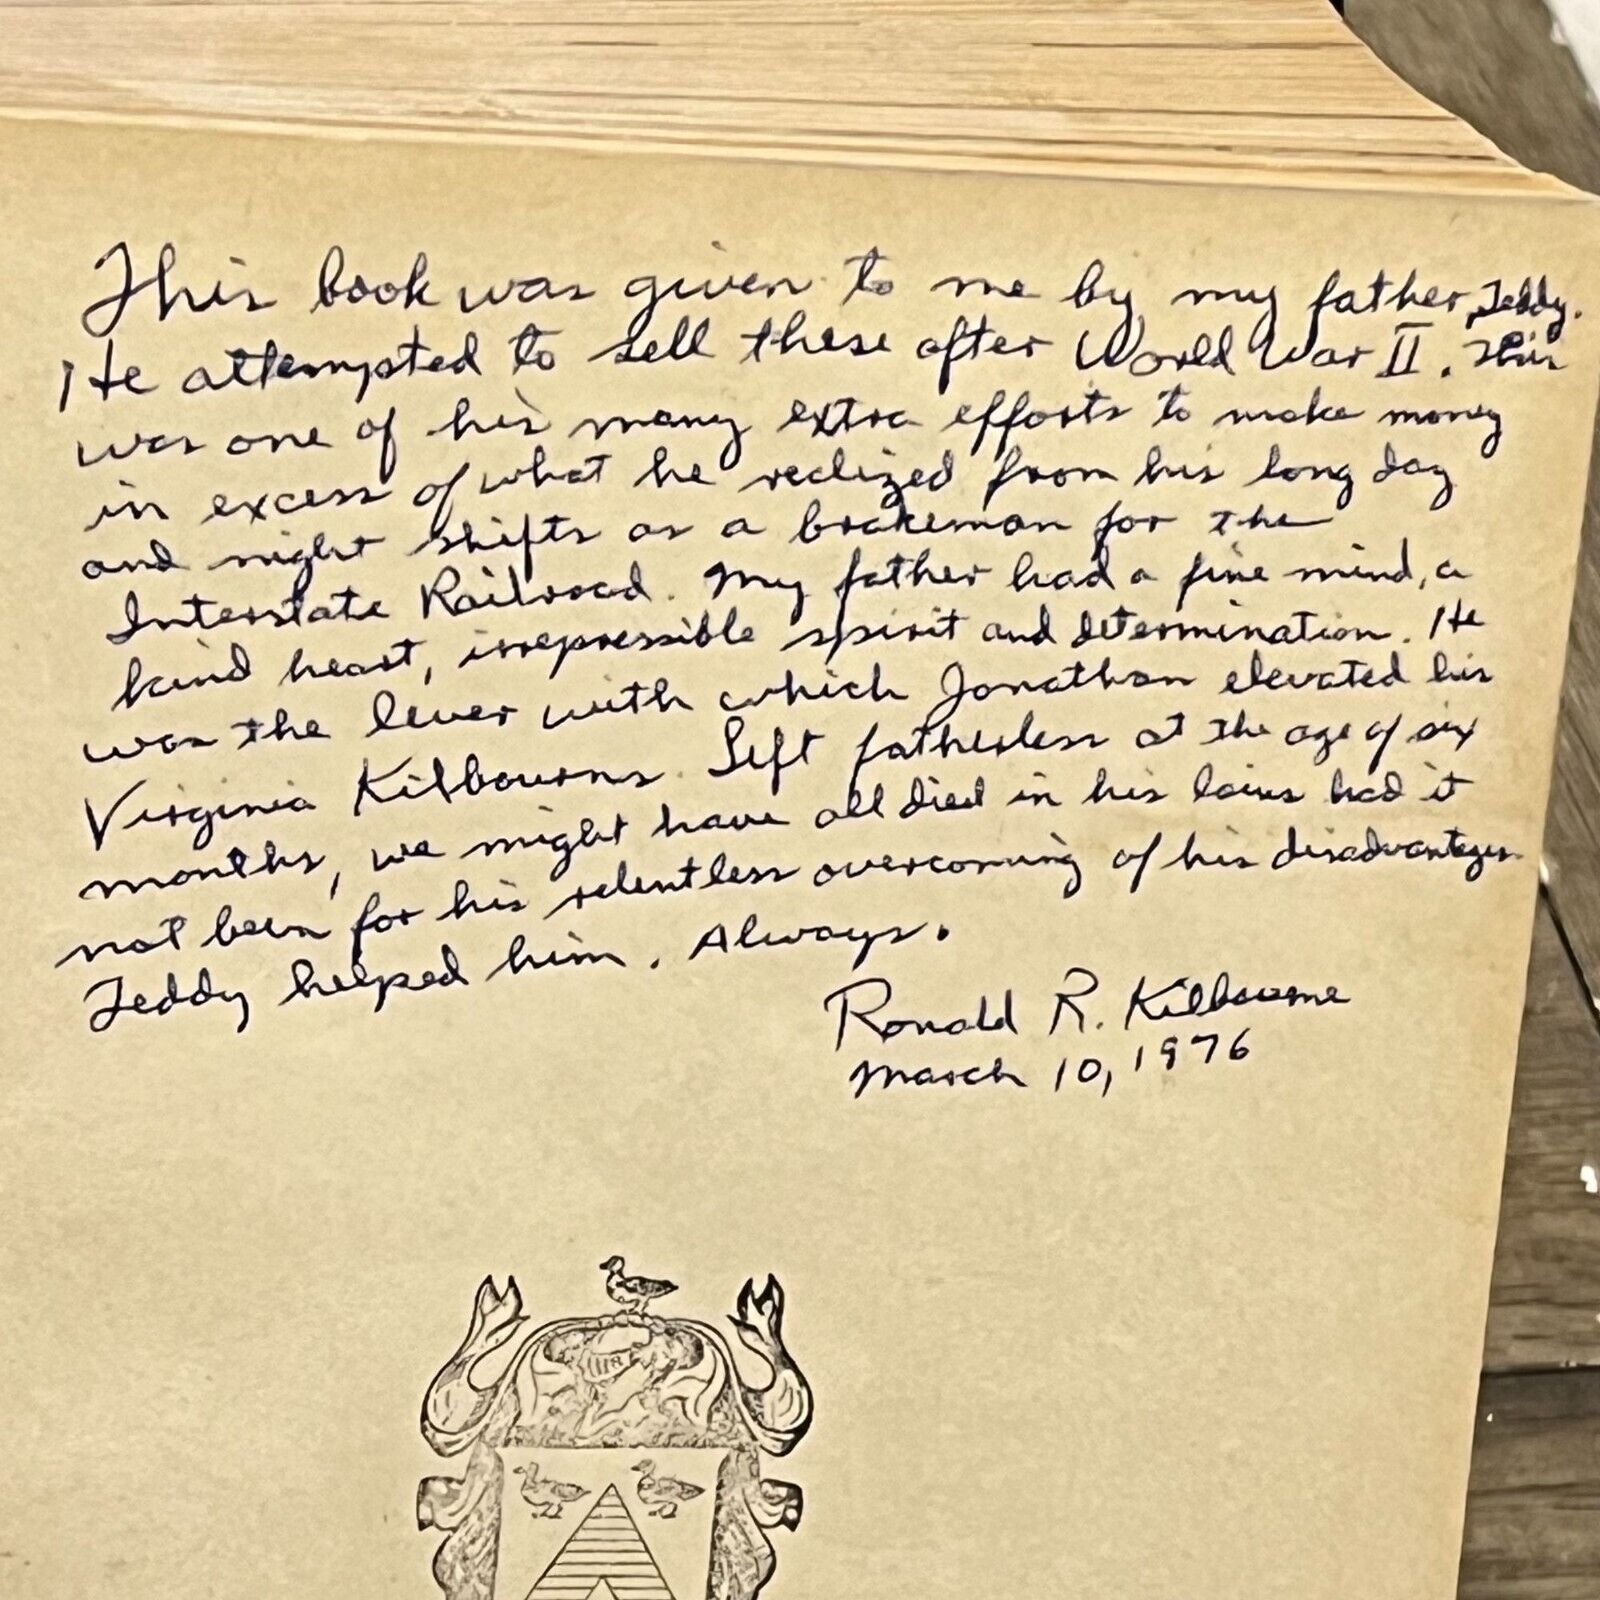 This book was given to me by my father, Teddy.
He attempted to sell these after World War II. This
was one of his many extra efforts to make money
in excess of what he realized from his long day
and night shifts as a brakeman for the
Interstate Railroad. My father had a fine mind, a
kind heart, irrepressible spirit and determination. He
was the lever with which Jonathan elevated his
Virginia Kilbourns. Left fatherless at the age of six
months, we might have all died in his loins had it
not been for his relentless overcoming of his disadvantages.
Teddy helped him. Always.
Ronald R. Kilbourne
March 10, 1976